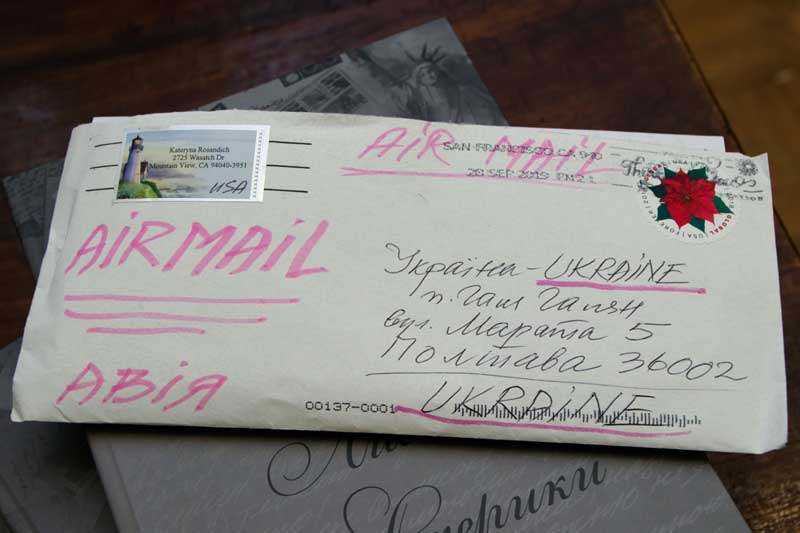 Kateryna Rosandich
2725 Wasatch Dr
Mountain View, CA 94040-3951
USA
AIR MAIL
SAN FRANCISCO CA 940
28 SEP 2019 PM 2 L
GLOBAL USA FOREVER 2018
AIRMAIL
АВІЯ
Україна - UKRAINE
п. Гаш Галян
вул. Марата 5
Полтава 36002
UKRAINE
00137-0001